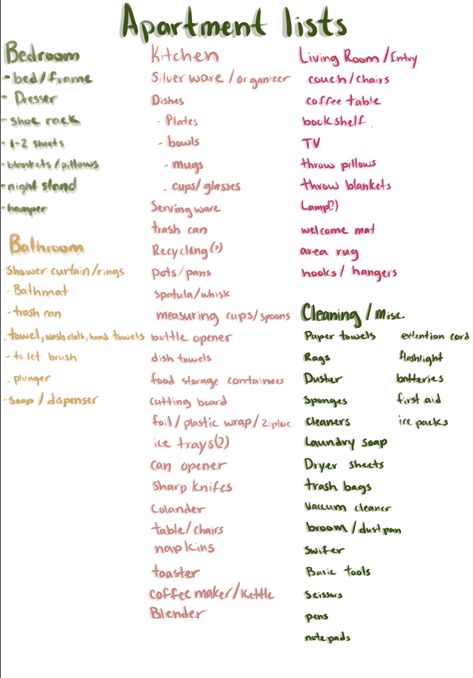 Apartment lists
Bedroom
- bed/frame
- Dresser
- shoe rack
- 1-2 sheets
- blankets/pillows
- night stand
- hamper
Bathroom
shower curtain/rings
- Bathmat
- trash can
- towel, wash cloth, hand towels
- toilet brush
- plunger
- soap / dispenser
Kitchen
Silverware/organizer
Dishes
- Plates
- bowls
- mugs
- cups/glasses
Serving ware
trash can
Recycling(?)
pots/pans
spatula/whisk
measuring cups/spoons
bottle opener
dish towels
food storage containers
cutting board
foil/plastic wrap/ziploc
ice trays(?)
can opener
Sharp knifes
Colander
table/chairs
napkins
toaster
coffee maker/Kettle
Blender
Living Room/Entry
couch/chairs
coffee table
bookshelf
TV
throw pillows
throw blankets
Lamp(?)
welcome mat
area rug
hooks/hangers
Cleaning/Misc.
Paper towels
Rags
Duster
Sponges
Cleaners
Laundry soap
Dryer sheets
trash bags
Vaccum cleaner
broom/dustpan
Swifer
Basic tools
Scissors
pens
notepads
extention cord
flashlight
batteries
first aid
ice packs